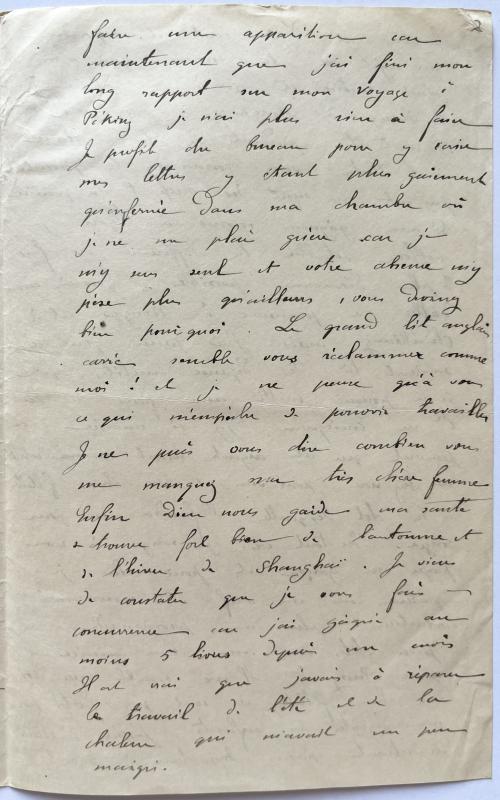 2
faire une apparition car
maintenant que j'ai fini mon
long rapport sur mon voyage à
Péking je n'ai plus rien à faire
Je profite du bureau pour y écrire
mes lettres y étant plus gaiement
qu'enfermé dans ma chambre où
je ne me plais guère car je
m'y sens seul et votre absence m'y
pèse plus qu'ailleurs, vous devinez
bien pourquoi. Le grand lit anglais
carré semble vous réclammer comme
moi ! et je ne pense qu'à vous
ce qui m'empêche de pouvoir travailler
Je ne puis vous dire combien vous
me manquez ma très chère femme
Enfin Dieu nous garde ma santé
se trouve fort bien de l'automne et
de l'hiver de Shanghaï. Je viens
de constater que je vous fais
concurrence car j'ai gagné au
moins 5 livres depuis un mois
Il est vrai que j'avais à réparer
le travail de l'été et de la
chaleur qui m'avait un peu
maigri.